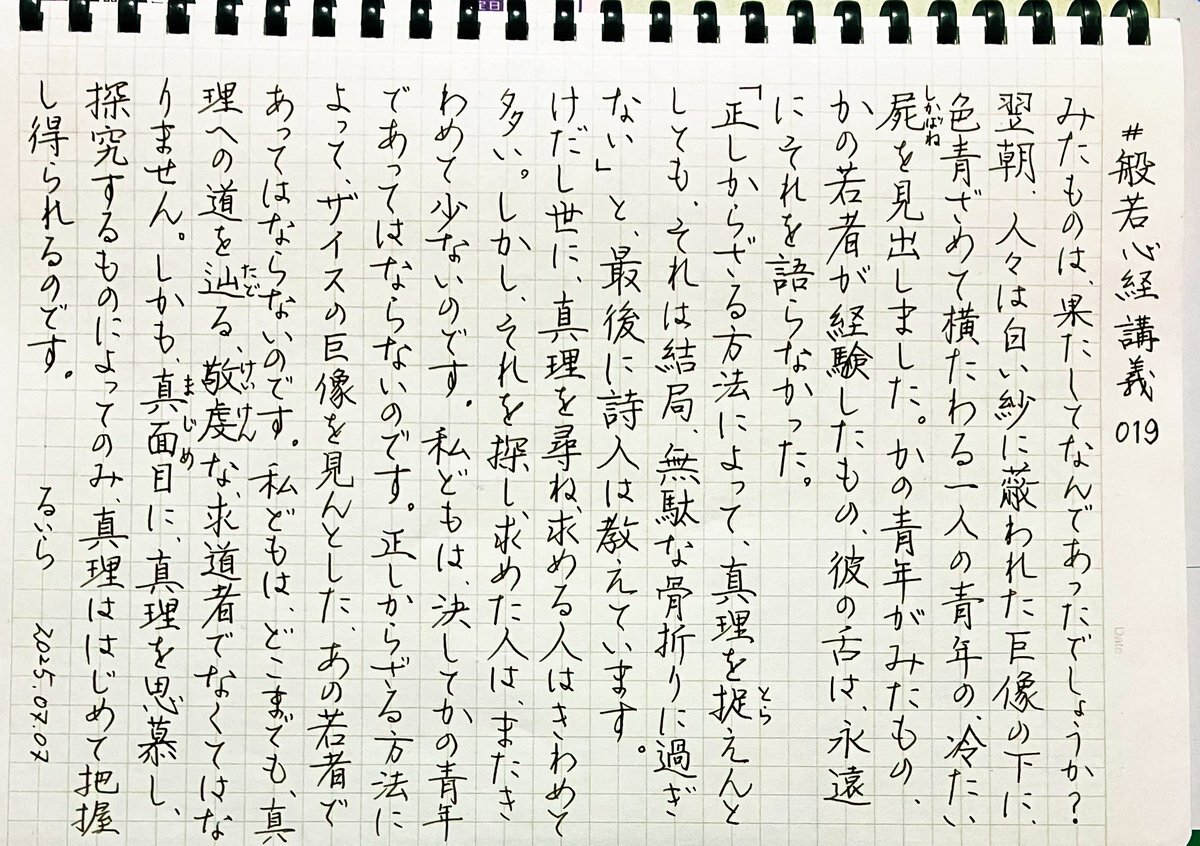 #般若心経講義 019
みたものは、果たしてなんであったでしょうか？
翌朝、人々は白い紗に蔽われた巨像の下に、
色青ざめて横たわる一人の青年の、冷たい
屍を見出しました。かの青年がみたもの、
しかばね
かの若者が経験したもの、彼の舌は、永遠
にそれを語らなかった。
「正しからざる方法によって、真理を捉えんと
とら
しても、それは結局、無駄な骨折りに過ぎ
ない」と、最後に詩人は教えています。
けだし世に、真理を尋ね求める人はきわめて
多い。しかし、それを探し求めた人は、またき
わめて少ないのです。私どもは、決してかの青年
であってはならないのです。正しからざる方法に
よって、ザイスの巨像を見んとした、あの若者で
あってはならないのです。私どもは、どこまでも、真
理への道を辿る、敬虔な、求道者でなくてはな
たど
けいけん
りません。しかも、真面目に、真理を思慕し、
まじめ
探究するものによってのみ、真理ははじめて把握
し得られるのです。
るいら 2025.07.07
Date